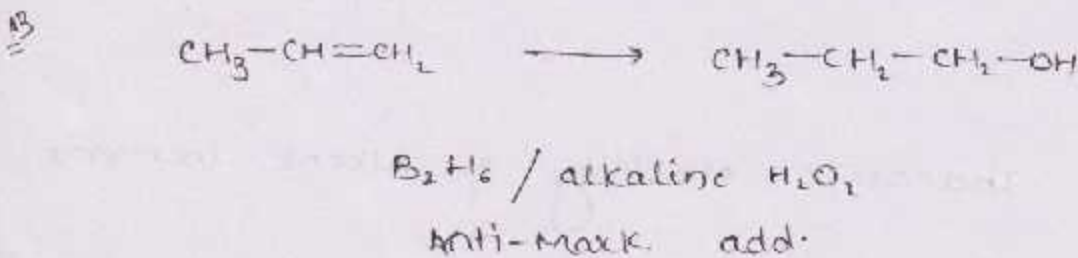 13
CH₃—CH=CH₂ ⟶ CH₃—CH₂—CH₂—OH
B₂H₆ / alkaline H₂O₂
Anti-Mark. add.